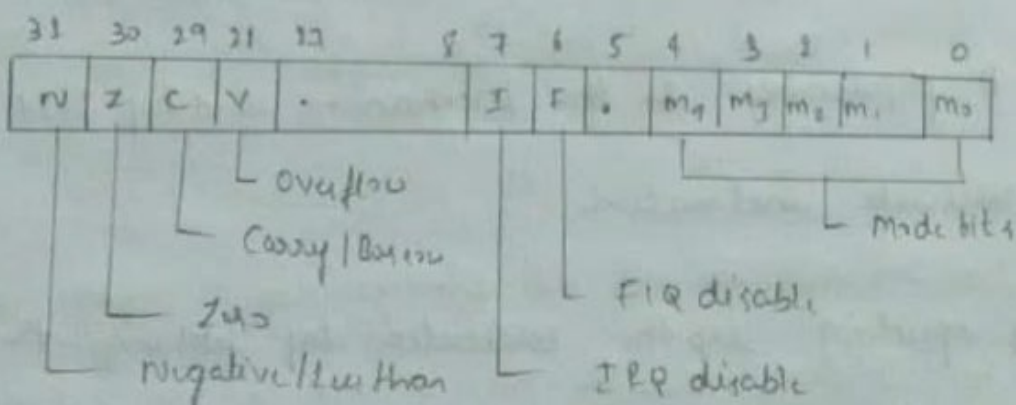 31 30 29 28 27 8 7 6 5 4 3 2 1 0
N Z C V . I F . M4 M3 M2 M1 M0
Overflow
Carry/Borrow
Zero
Negative/Less than
Mode bits
FIQ disable
IRQ disable